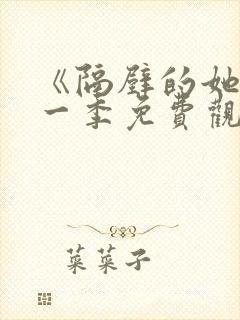 《隔壁的她
一季免費觀
菜菜子